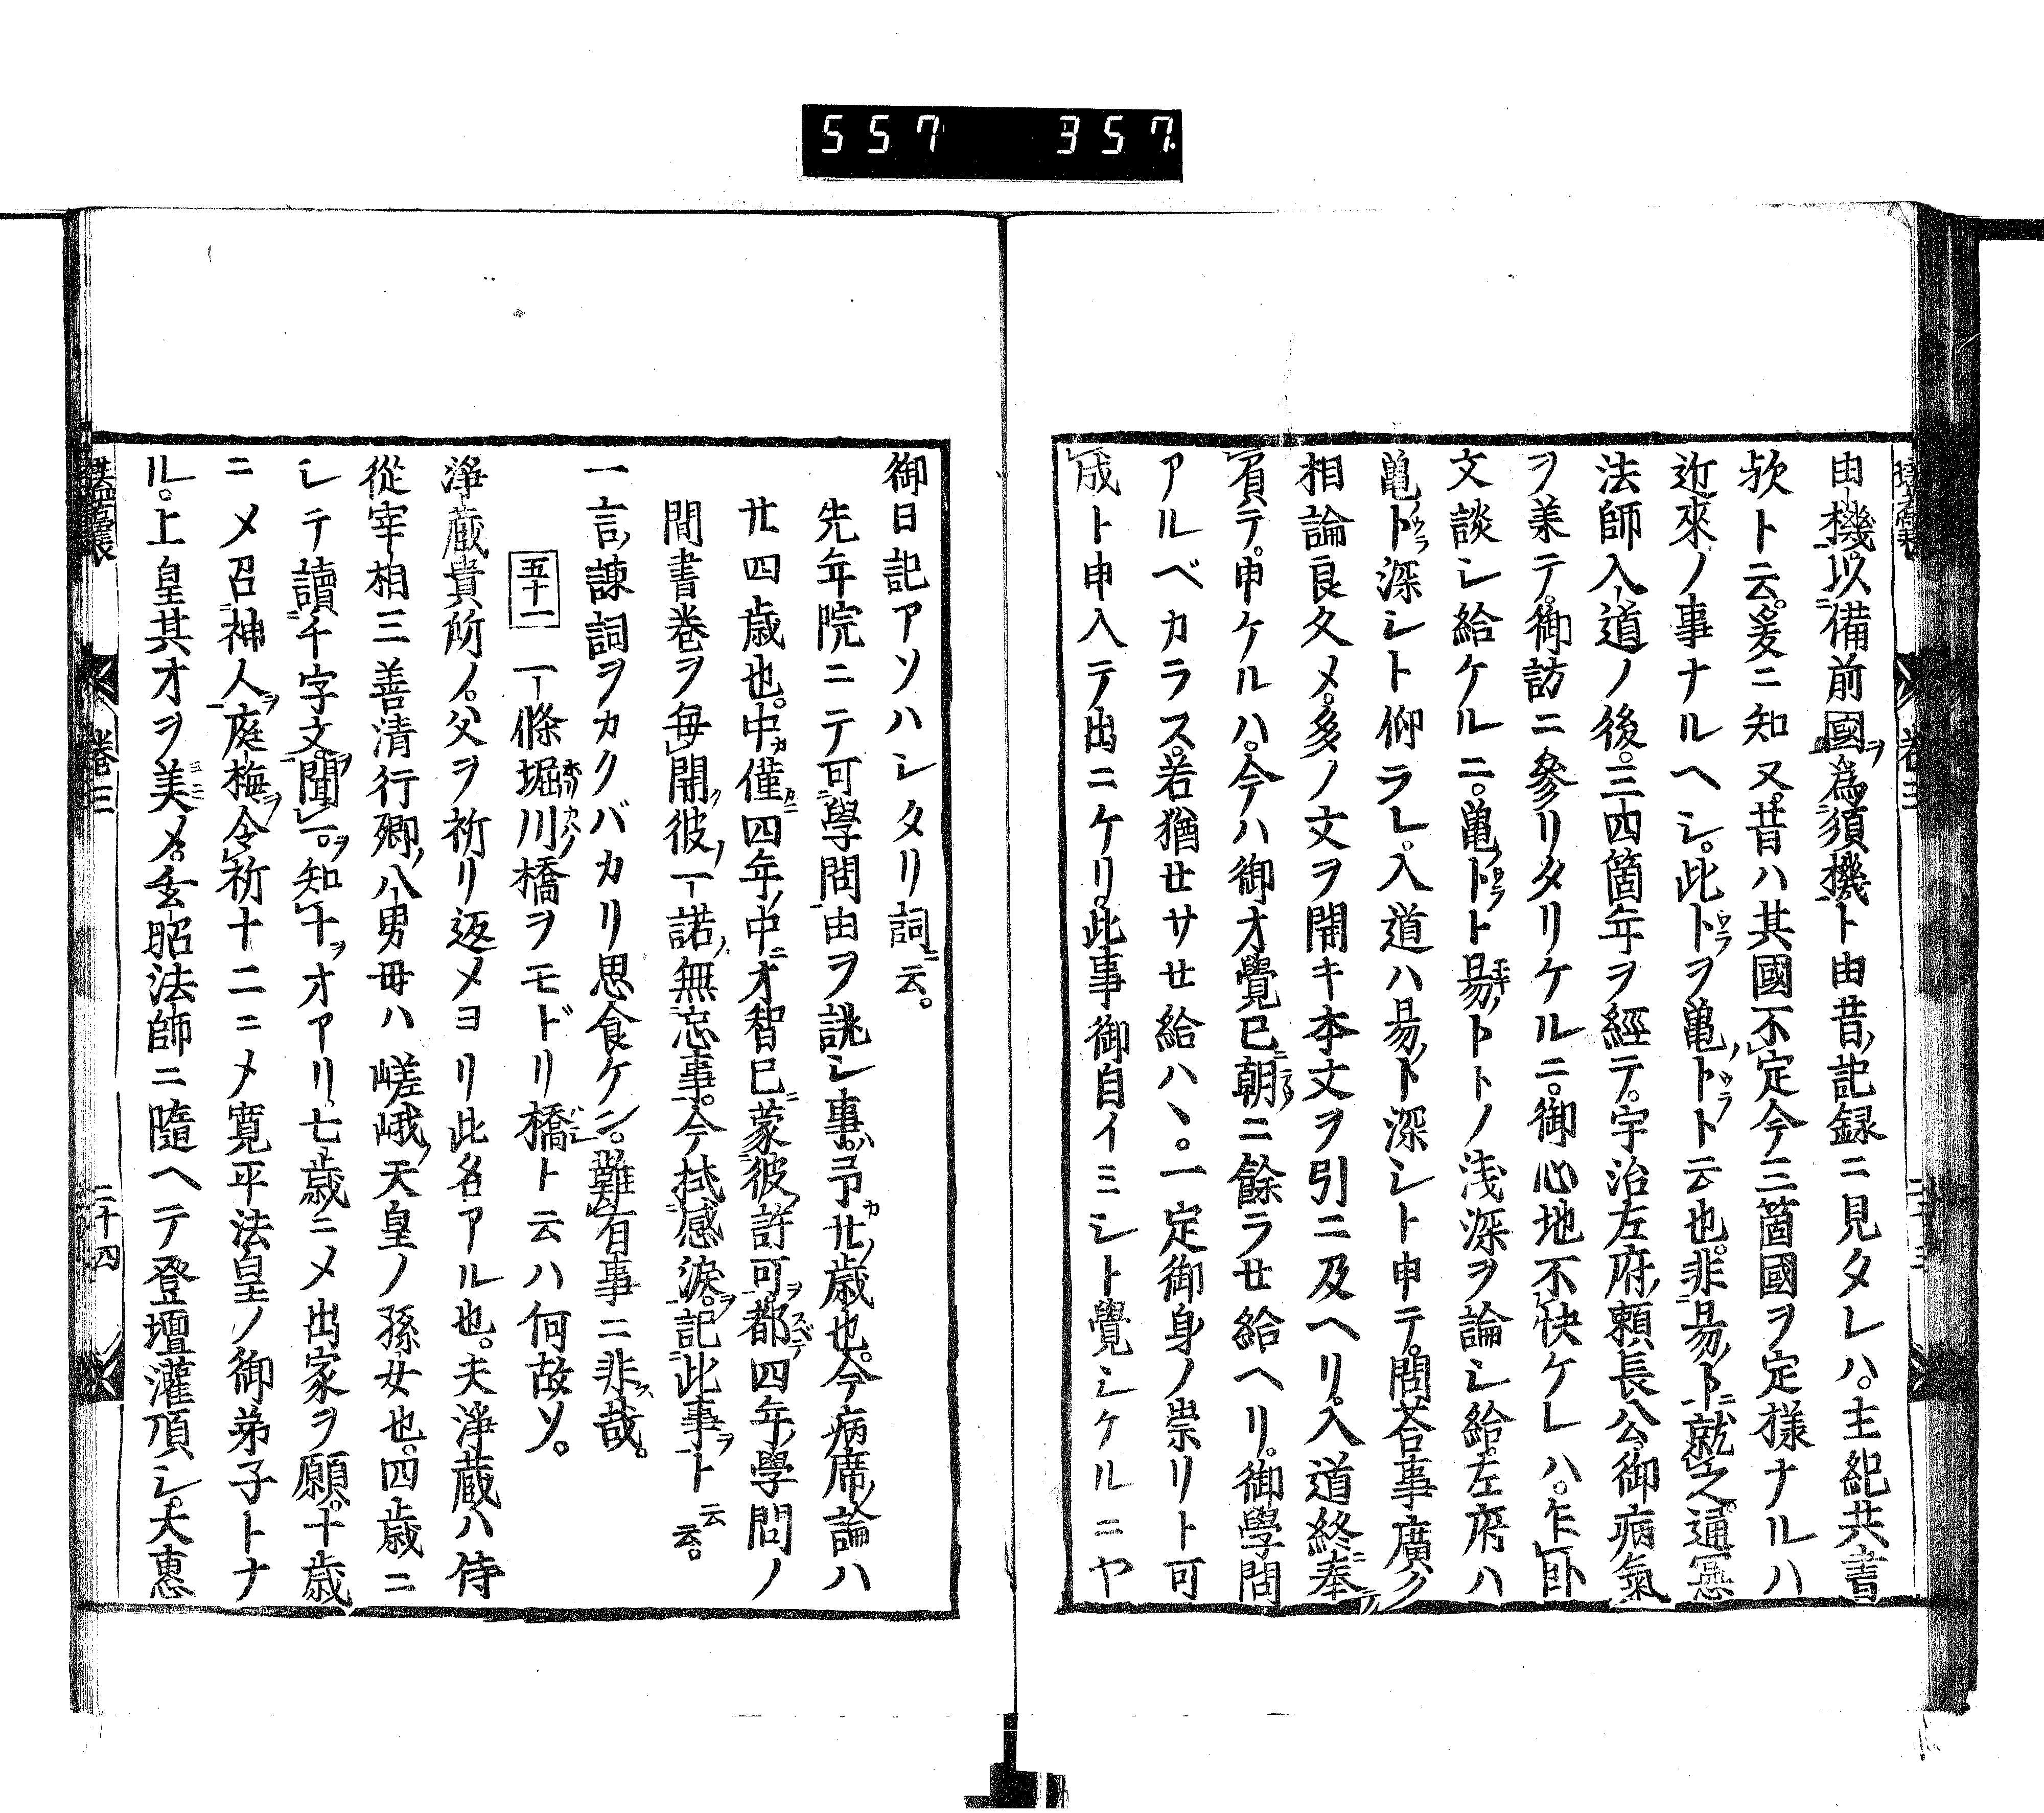 557 357
由機。以備前國ヲ為須機ト由昔記録ニ見タレハ。主紀共書
歟ト云。爰ニ知ヌ。昔ハ其國不定今三箇國ヲ定様ナルハ
近來ノ事ナルヘシ。此卜ヲ亀卜ト云也。非易卜ニ就之。通憲
法師入道ノ後。三四箇年ヲ經テ。宇治左府頼長公御病氣
ヲ兼テ。御訪ニ參リタリケルニ。御心地不快ケレハ。乍臥
文談シ給ケルニ。亀卜ト易卜トノ浅深ヲ論シ給。左府ハ
亀卜深シト仰ラレ。入道ハ易卜深シト申テ。問荅事廣ク
相論良久メ。多ノ文ヲ開キ本文ヲ引ニ及ヘリ。入道終ニ奉
負テ。申ケルハ。今ハ御才覺已ニ朝ニ餘ラせ給ヘリ。御學問
アルベカラス。若猶せサせ給ハヽ。一定御身ノ祟リト可
成ト申入テ出ニケリ。此事御自イミシト覺シケルニヤ
御日記アソハシタリ詞ニ云。
先年院ニテ可學問由ヲ誂シ事。予廿歳也。今病席論ハ
廿四歳也。中僅四年中ニ才智已蒙彼許可ヲ都四年學問ノ
間書卷ヲ毎開彼一諾無忘事。今拭感涙ヲ。記此事ヲト云云。
一言諌詞ヲカクバカリ思食ケン。難有事ニ非哉。
五十一 一條堀川橋ヲモドリ橋ト云ハ何故ソ。
浄蔵貴所ノ。父ヲ祈リ返メヨリ此名アル也。夫浄蔵ハ侍
從宰相三善清行卿八男母ハ嵯峨天皇ノ孫女也。四歳ニ
シテ讀千字文。聞一ヲ。知十ヲオアリ。七歳ニメ出家ヲ願。十歳
ニメ召神人ヲ庭梅ヲ令祈十二ニメ寛平法皇ノ御弟子トナ
ル。上皇其才ヲ美メ。玄昭法師ニ隨ヘテ登壇灌頂シ。大惠
卷三
二十四